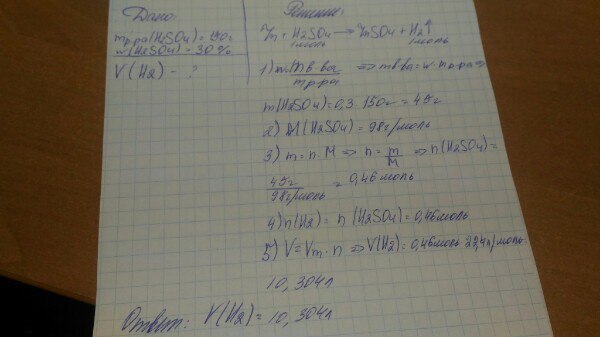 Дано:
mр-ра(H2SO4)=150г
w(H2SO4)=30%
V(H2) - ?
Решение:
Zn + H2SO4 → ZnSO4 + H2↑
1моль 1моль
1) w= mв-ва/mр-ра => mв-ва=w·mр-ра
m(H2SO4)=0,3·150г=45г
2) M(H2SO4)=98г/моль
3) m=n·M => n=m/M => n(H2SO4)=
45г/98г/моль = 0,46моль
4) n(H2)= n(H2SO4)=0,46моль
5) V=Vm·n => V(H2)=0,46моль·22,4л/моль=
10,304л
Ответ: V(H2)=10,304л